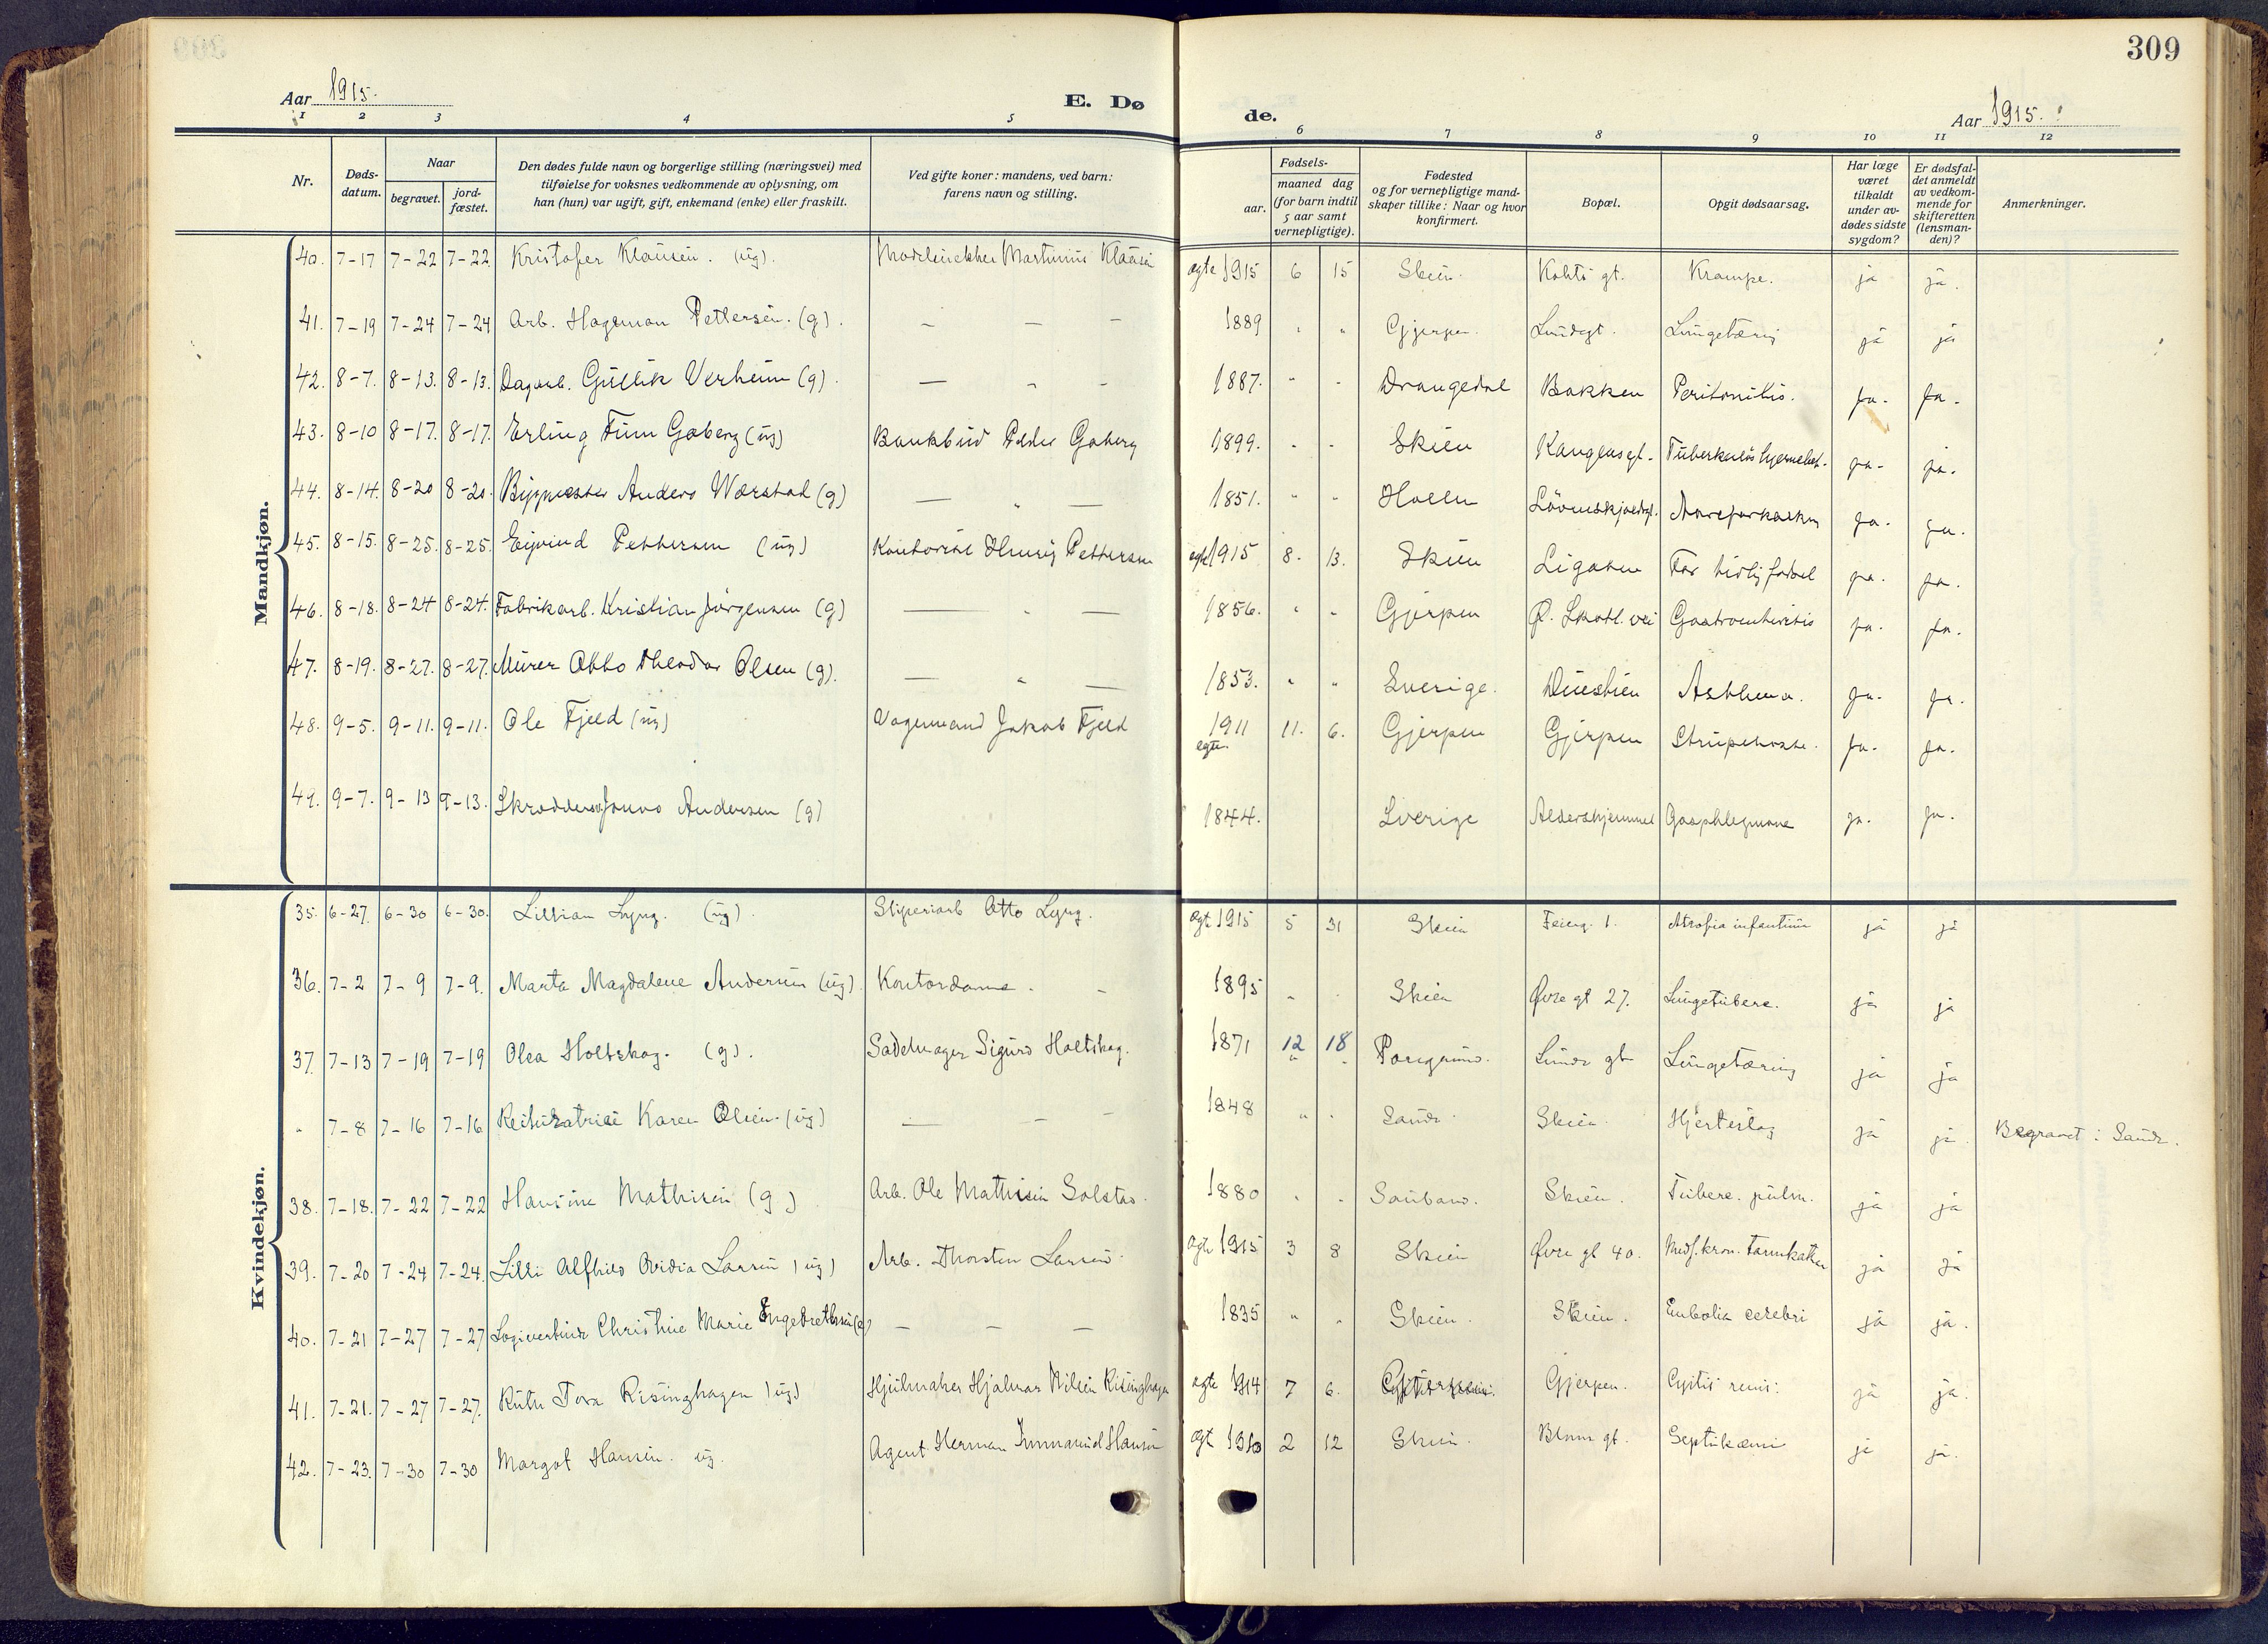 309
Aar 1915.
E. Dø
de.
Aar 1915.
1 2 3 4 5 6 7 8 9 10 11 12
Nr.
Døds-datum.
Naar
begravet.
jord-fæstet.
Den dødes fulde navn og borgerlige stilling (næringsvei) med
tilføielse for voksnes vedkommende av oplysning, om
han (hun) var ugift, gift, enkemand (enke) eller fraskilt.
Ved gifte koner: mandens, ved barn:
farens navn og stilling.
Fødsels-
aar.
maaned dag
(for barn indtil
5 aar samt
vernepligtige).
Fødested
og for vernepligtige mand-
skaper tillike: Naar og hvor
konfirmert.
Bopæl.
Opgit dødsaarsag.
Har læge
været
tilkaldt
under av-
dødes sidste
sygdom?
Er dødsfal-
det anmeldt
av vedkom-
mende for
skifteretten
(lensman-
den)?
Anmerkninger.
Mandkjøn.
40. 7-17 7-22 7-22 Kristofer Klausen. (ug). Martinius Klausen ægte 1915 6 15 Skien. gt. Krampe. ja ja.
41. 7-19 7-24 7-24 Arb. Hageman Pettersen. (g). — — — 1889 " " Gjerpen. Lundegt. Lungetæring ja ja
42. 8-7. 8-13. 8-13. Dagarb. Gullik Verheim (g). — " - 1887. " - Drangedal Bakken Peritonitis. ja. ja.
43. 8-10 8-17. 8-17. Erling Finn Gaberg (ug) Bankbud Peder Gaberg 1899. - - Skien Kanglasgt. Tuberkuløs ja. ja.
44. 8-14. 8-20 8-20. Anders Værstad (g) — " — 1851. " " Hollen Aareforkalkn ja. ja.
45. 8-15. 8-25. 8-25. Eyvind Pettersen (ug) Kontorist Henry Pettersen ægte 1915 8. 13. Skien Ligaten For tidlig fødsel ja. ja.
46. 8-18. 8-24 8-24. Fabrikarb. Kristian Jörgensen (g) — " — 1856. " - Gjerpen Ø. Skotl. vei Gastroenteritis ja. ja.
47. 8-19. 8-27. 8-27. Murer Otto Theodor Olsen (g). — " — 1853. " " Sverige. Duestien Asthma. ja. ja.
48. 9-5. 9-11. 9-11. Ole Fjeld (ug) Vognmand Jakob Fjeld 1911 egte. 11. 6. Gjerpen Gjerpen Strupehoste. ja. ja.
49. 9-7. 9-13 9-13. Andersen (g) 1844. Sverige Aldershjemmet Gasphlegmone ja. ja.
Kvindekjøn.
35. 6-27. 6-30 6-30. Lillian Lyng. (ug). Sliperiarb Otto Lyng. ægte 1915 5 31 Skien 1. Atrofia infantium ja ja
36. 7-2 7-9 7-9. Marta Magdalene Andersen (ug). Kontordame. - 1895 " " Skien Øvre gt 27. Lungetuberc. ja ja
37. 7-13 7-19 7-19 Olea Holtskog. (g). Sadelmager Sigurd Holtskog. 1871 12 18 Porsgrund. Lunde gt Lungetæring ja ja
" 7-8 7-16 7-16 Karen Olsen. (ug) — — - 1848 " " Sande Skien. Hjerteslag ja ja. Begravet i Sande.
38. 7-18. 7-22 7-22 Hansine Mathisen (g) Arb. Ole Mathisen Solstad. 1880 " " Skien. Tuberc. pulm. ja ja
39. 7-20 7-24 7-24. Lilli Alfhild Ovidia Larsen (ug) Arb. Thorsten Larsen ægte 1915 3 8 Skien Øvre gt 40. Medf. kron. tarmkatar ja ja
40. 7-21 7-27 7-27 Christine Marie Engebrethsen (e) — — — 1835 " " Skien. Skien. Embolia cerebri ja ja.
41. 7-21. 7-27 7-27. Ruth Tora Risinghagen (ug) Hjulmaker Hjalmar Nilsen Risinghagen ægte 1914 7 6. Gjerpen. Cystis renis. ja ja.
42. 7-23. 7-30 7-30 Margot Hansen. ug. Agent Herman Immanuel Hansen ægt 1910 2 12 Skien. Blom gt. Septikæmi ja ja.